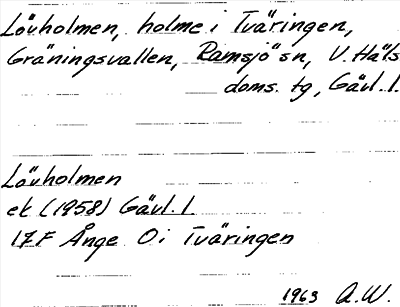 Lövholmen, holme i Tväringen,
Gräningsvallen, Ramsjö sn, V. Häls
doms. tg, Gävl. l.
Lövholmen
ek (1958) Gävl. l.
17F Ånge O i Tväringen
1963 A.W.